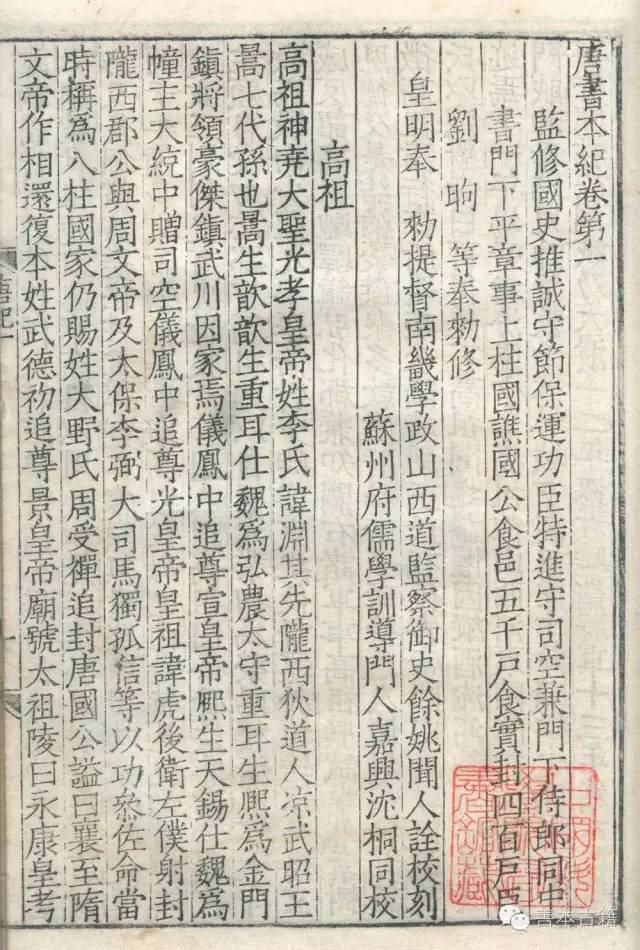 唐書本紀卷第一
監修國史推誠守節保運功臣特進守司空兼門下侍郎同中
書門下平章事上柱國譙國公食邑五千戶食實封四百戶臣
劉昫 等奉勑修
皇明奉 勑提督南畿學政山西道監察御史餘姚聞人詮校刻
蘇州府儒學訓導門人嘉興沈桐同校
高祖
高祖神堯大聖光孝皇帝姓李氏諱淵其先隴西狄道人涼武昭王
暠七代孫也暠生歆歆生重耳仕魏為弘農太守重耳生熈為金門
鎮將領豪傑鎮武川因家焉儀鳳中追尊宣皇帝熈生天錫仕魏為
幢主大統中贈司空儀鳳中追尊光皇帝皇祖諱虎後衛左僕射封
隴西郡公與周文帝及太保李弼大司馬獨孤信等以功叅佐命當
時稱為八柱國家仍賜姓大野氏周受禪追封唐國公謚曰襄至隋
文帝作相還復本姓武德初追尊景皇帝廟號太祖陵曰永康皇考
唐紀一
一
善本古籍